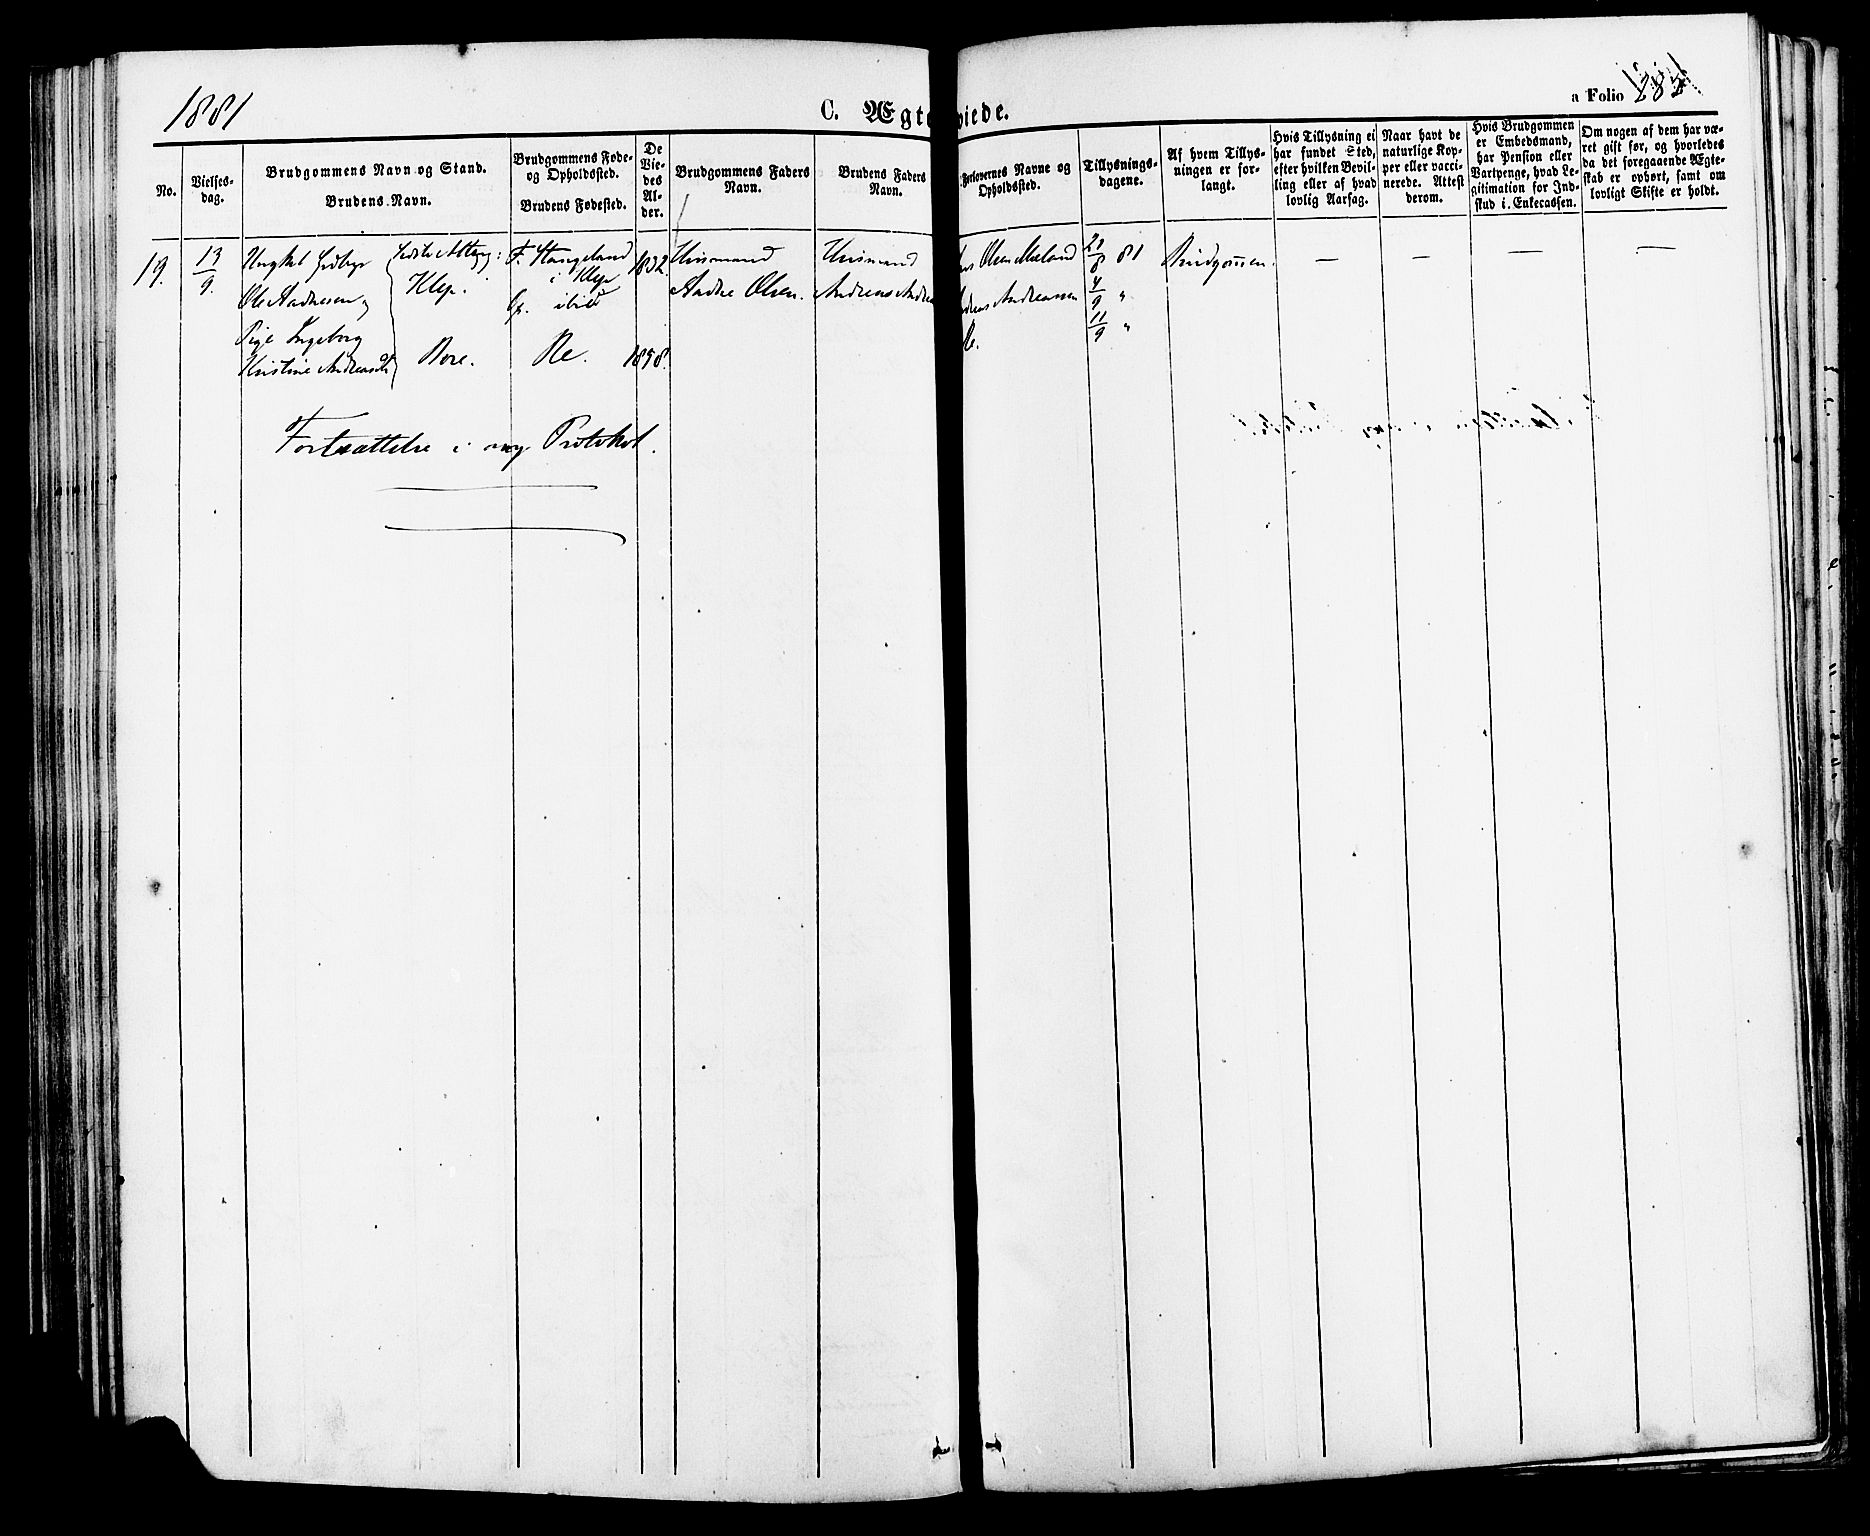 1881
C. Ægte viede.
a Folio
No.
Vielses-
dag.
Brudgommens Navn og Stand.
Brudens Navn.
Brudgommens Føde-
og Opholdssted.
Brudens Fødested.
De
Vie-
des
Al-
der.
Brudgommens Faders
Navn.
Brudens Faders
Navn.
Forlovernes Navne og
Opholdssted.
Tillysnings-
dagene.
Af hvem Tillys-
ningen er for-
langt.
Hvis Tillysning ei
har fundet Sted,
efter hvilken Bevil-
ling eller af hvad
lovlig Aarsag.
Naar havt de
naturlige Kop-
per eller vacci-
nerede. Attest
derom.
Hvis Brudgommen
er Embedsmand,
har Pension eller
Vartpenge, hvad Le-
gitimation for Ind-
skud i Enkecassen.
Om nogen af dem har væ-
ret gift før, og hvorledes
da det foregaaende Ægte-
skab er ophørt, samt om
lovligt Skifte er holdt.
19.
13
9.
Ungkel
Ole Aadnesen
Pige Ingeborg
Kristine
Klep.
Bore.
F. Stangeland
i Klep
ibid
Re.
1832
1858.
Huusmand
Aadne Olsen.
Huusmand
Andreas
Olsen
Andreassen
Re.
28
8 81
4
9 "
11
9 "
Brudgommen.
—
—
—
—
Fortsættelse i ny Protokol.